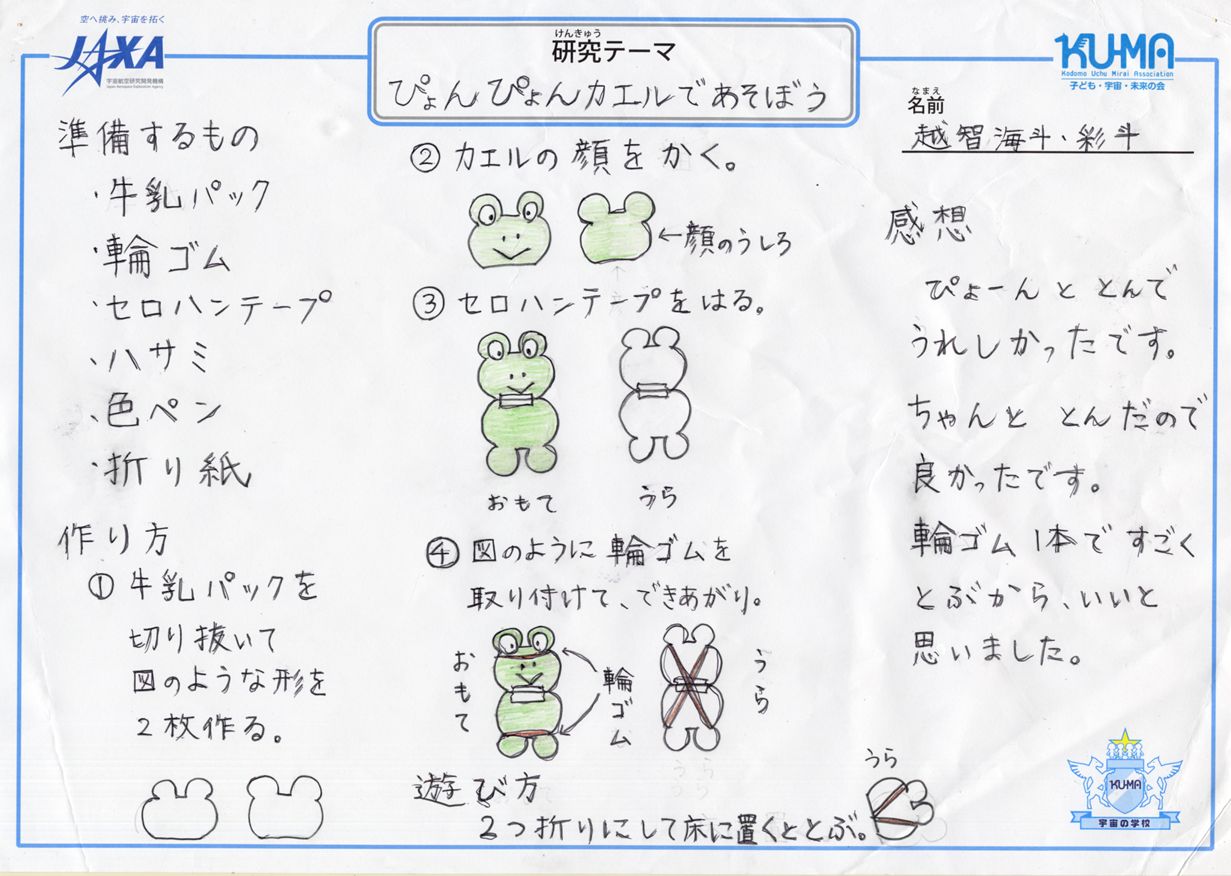 空へ挑み、宇宙を拓く
JAXA
宇宙航空研究開発機構
Japan Aerospace Exploration Agency
けんきゅう
研究テーマ
ぴょんぴょんカエルであそぼう
KU-MA
Kodomo Uchu Mirai Association
子ども・宇宙・未来の会
なまえ
名前
越智海斗・彩斗
準備するもの
・牛乳パック
・輪ゴム
・セロハンテープ
・ハサミ
・色ペン
・折り紙
作り方
①牛乳パックを
切り抜いて
図のような形を
2枚作る。
②カエルの顔をかく。
←顔のうしろ
③セロハンテープをはる。
おもて
うら
④図のように輪ゴムを
取り付けて、できあがり。
おもて
輪ゴム
うら
遊び方
2つ折りにして床に置くととぶ。
うら
感想
ぴょーんと とんで
うれしかったです。
ちゃんと とんだので
良かったです。
輪ゴム1本で すごく
とぶから、いいと
思いました。
KU-MA
宇宙の学校